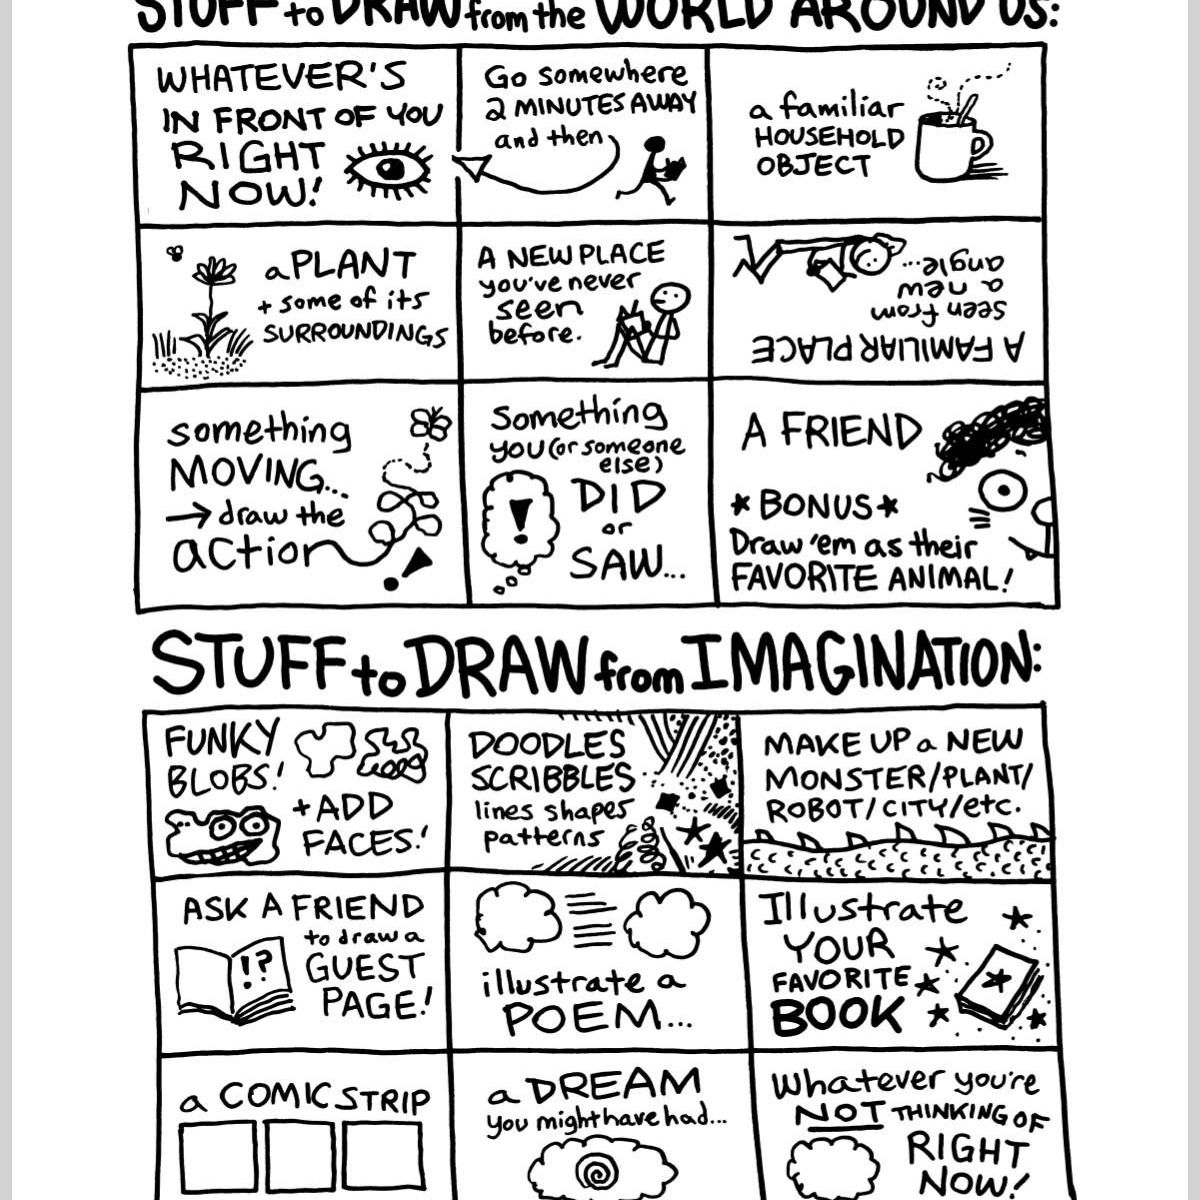 STUFF to DRAW from the WORLD AROUND US:
WHATEVER'S
IN FRONT OF YOU
RIGHT
NOW!
Go somewhere
2 MINUTES AWAY
and then
a familiar
HOUSEHOLD
OBJECT
a PLANT
+ some of its
SURROUNDINGS
A NEW PLACE
you've never
seen
before.
A FAMILIAR PLACE
seen from
a new
angle...
something
MOVING...
→ draw the
action
!
Something
you (or someone
else)
DID
or
SAW...
!
A FRIEND
* BONUS *
Draw 'em as their
FAVORITE ANIMAL!
STUFF to DRAW from IMAGINATION:
FUNKY
BLOBS!
+ ADD
FACES!
DOODLES
SCRIBBLES
lines shapes
patterns
MAKE UP a NEW
MONSTER/PLANT/
ROBOT/CITY/etc.
ASK A FRIEND
to draw a
GUEST
PAGE!
!?
illustrate a
POEM...
Illustrate
YOUR
FAVORITE
BOOK
a COMIC STRIP
a DREAM
you might have had...
Whatever you're
NOT THINKING OF
RIGHT
NOW!